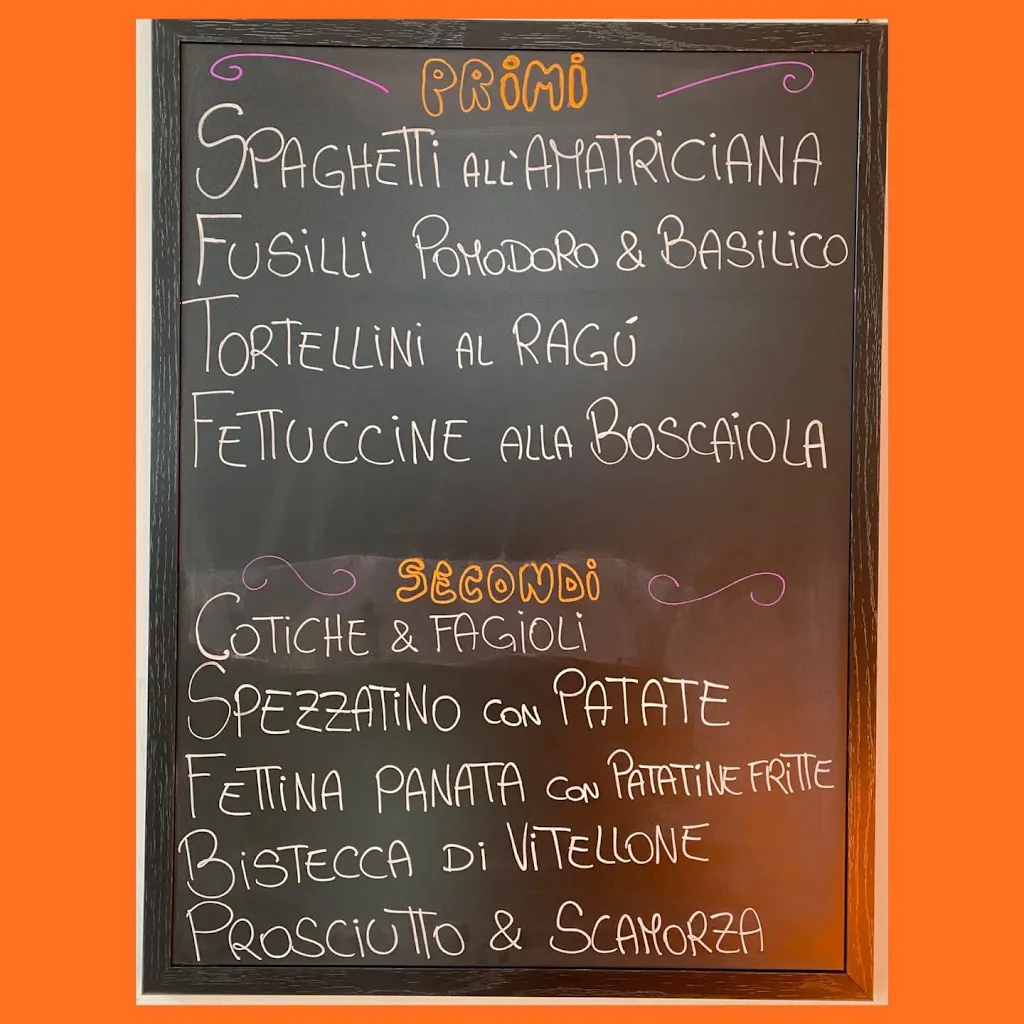 PRIMI
SPAGHETTI ALL'AMATRICIANA
FUSILLI POMODORO & BASILICO
TORTELLINI AL RAGÚ
FETTUCCINE ALLA BOSCAIOLA
SECONDI
COTICHE & FAGIOLI
SPEZZATINO CON PATATE
FETTINA PANATA CON PATATINE FRITTE
BISTECCA DI VITELLONE
PROSCIUTTO & SCAMORZA